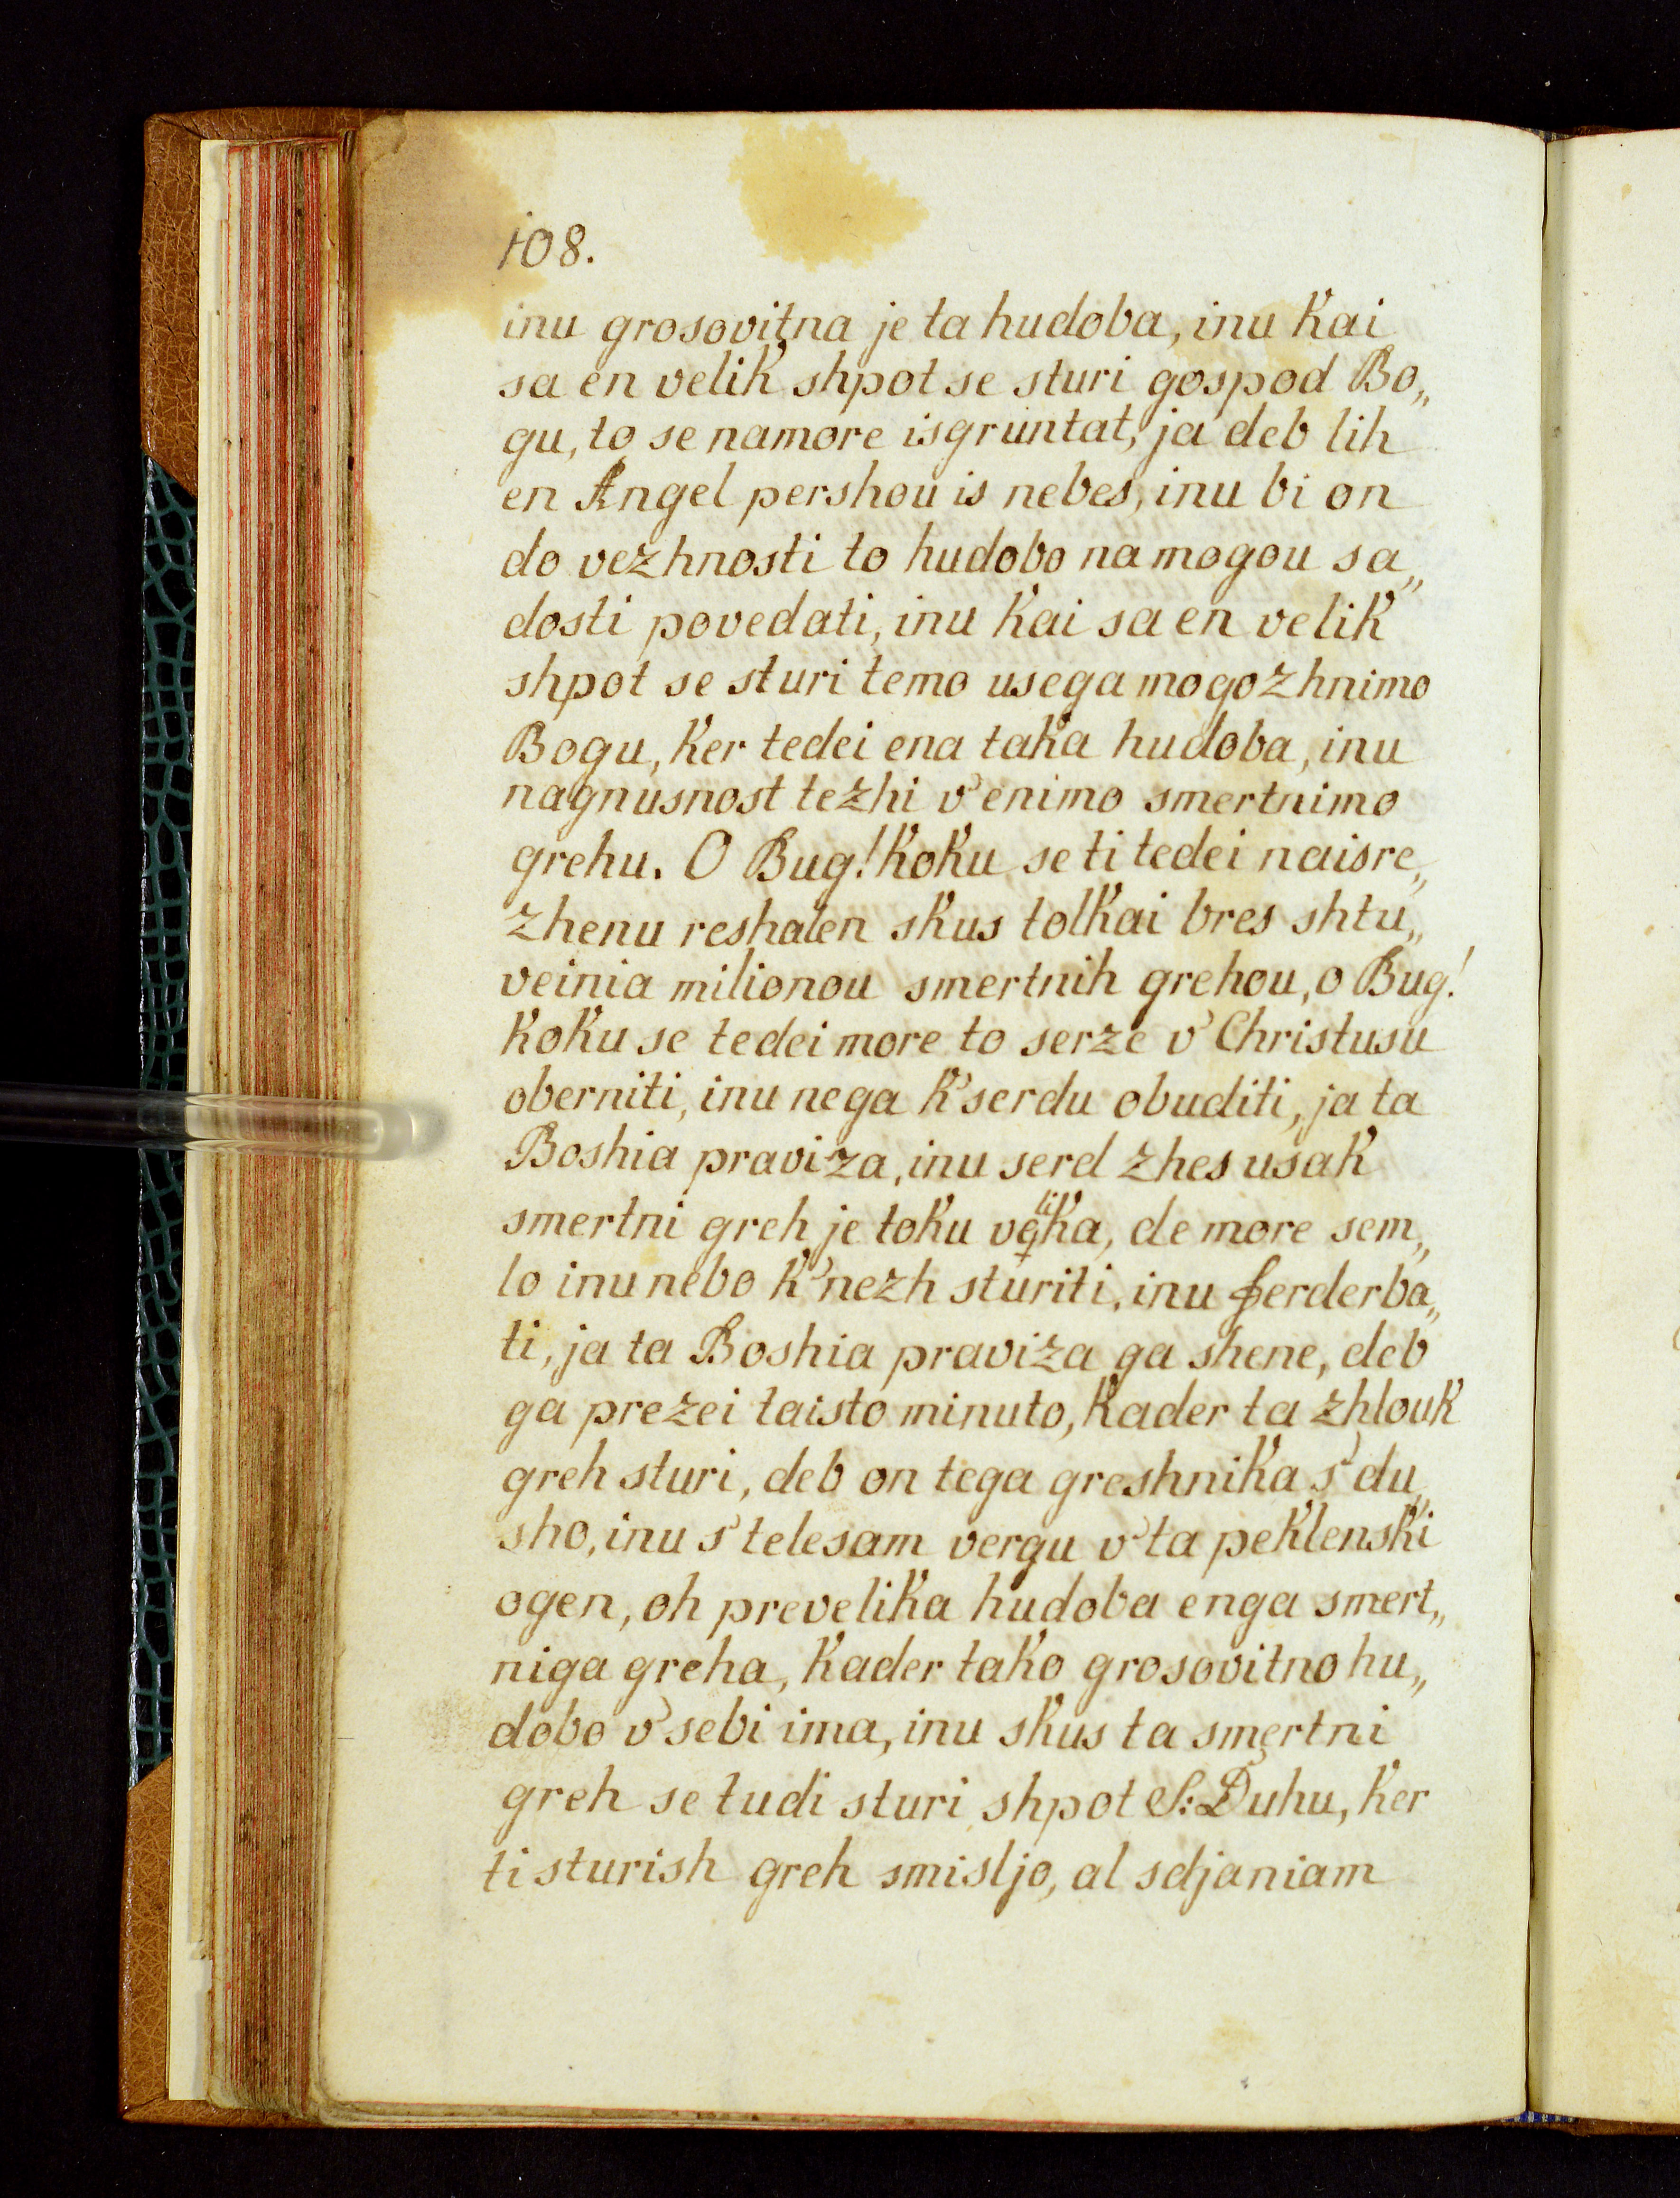 108.
inu grosovitna je ta hudoba, inu kai
sa en velik shpot se sturi gospod Bo„
gu, to se namore isgruntat, ja deb lih
en Angel pershou is nebes, inu bi on
do vezhnosti to hudobo na mogou sa„
dosti povedati, inu kai sa en velik
shpot se sturi temo usega mogozhnimo
Bogu, ker tedei ena taka hudoba, inu
nagnusnost tezhi v' enimo smertnimo
grehu. O Bug! koku se ti tedei naisre„
zhenu reshalen skus tolkai bres shtu„
veinia milionou smertnih grehou, o Bug!
koku se tedei more to serze v' Christusu
oberniti, inu nega k' serdu obuditi, ja ta
Boshia praviza, inu serd zhes usak
smertni greh je toku velika, de more sem„
lo inu nebo k' nezh sturiti, inu ferderba„
ti, ja ta Boshia praviza ga shene, deb
ga prezei taisto minuto, kader ta zhlouk
greh sturi, deb on tega greshnika s' du„
sho, inu s' telesam vergu v' ta peklenski
ogen, oh prevelika hudoba enga smert„
niga greha, kader tako grosovitno hu„
dobo v' sebi ima, inu skus ta smertni
greh se tudi sturi shpot S: Duhu, ker
ti sturish greh smisljo, al sdjaniam